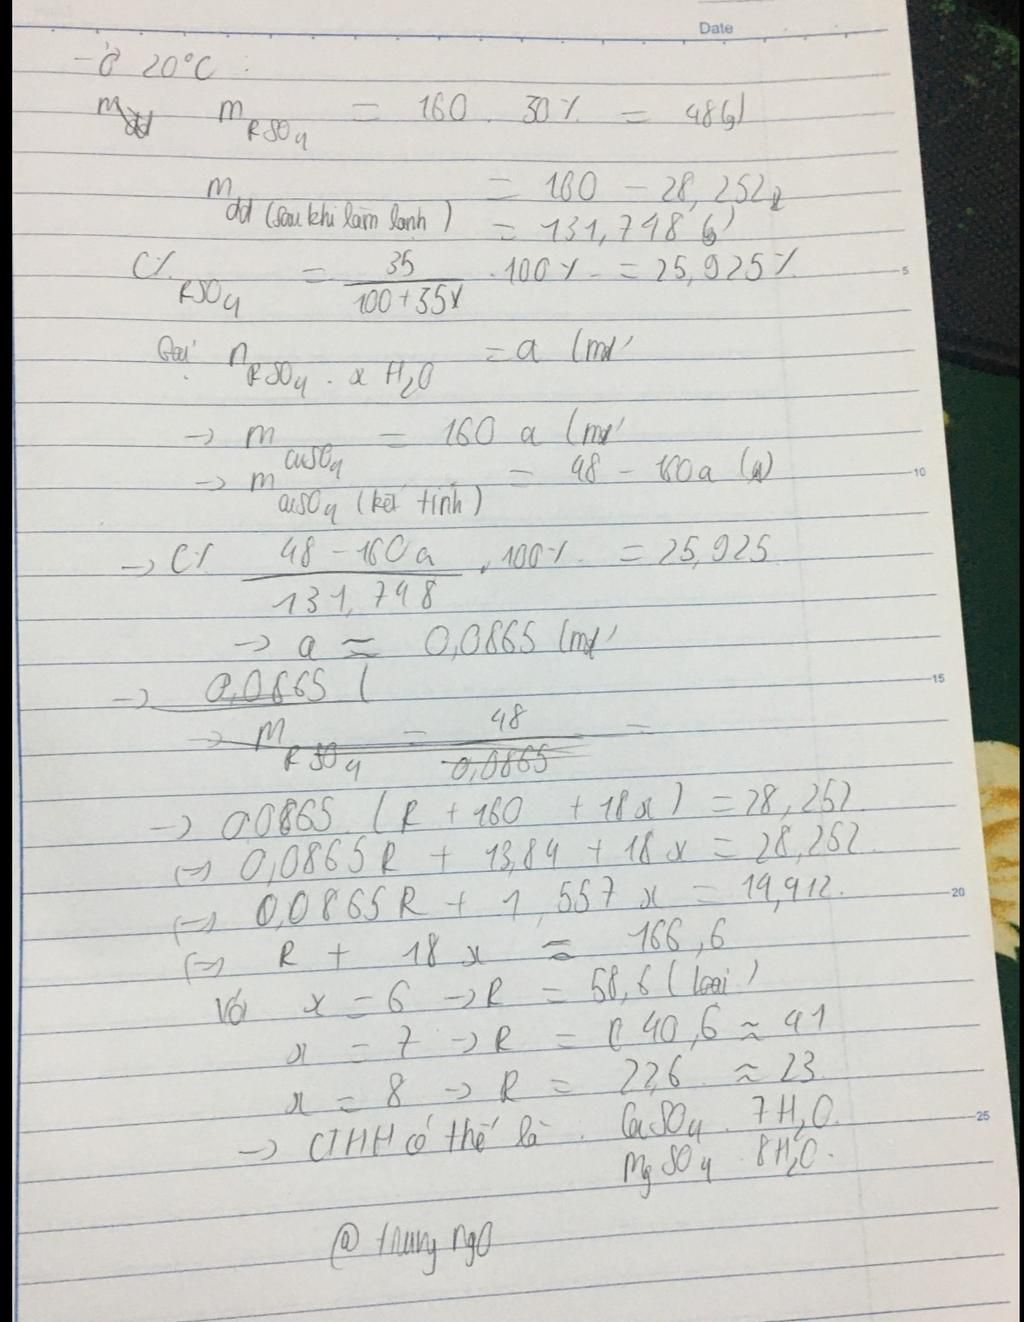 Date
- Ở 20°C :
m RSO4 = 160 . 30% = 48(g)
m dd (sau khi làm lạnh) = 160 - 28,252
= 131,748 (g)
C% RSO4 = 35/(100+35) . 100% = 25,925%
5
Gọi n RSO4 . x H2O = a (mol)
-> m CuSO4 = 160 a (mol)
-> m CuSO4 (kết tinh) = 48 - 160a (g)
10
-> C% (48 - 160a)/131,748 . 100% = 25,925
-> a ≈ 0,0865 (mol)
-> 0,0865 (
15
-> M RSO4 = 48/0,0865 =
-> 0,0865 (R + 160 + 18x) = 28,252
(=) 0,0865R + 13,84 + 18x = 28,252
(=) 0,0865R + 1,557x = 14,412.
20
(=) R + 18x ≈ 166,6
Với x = 6 -> R = 58,6 (loại)
x = 7 -> R = 40,6 ≈ 41
x = 8 -> R = 22,6 ≈ 23
-> CTHH có thể là : CaSO4 . 7H2O.
25
MgSO4 . 8H2O.
@ trung ngo